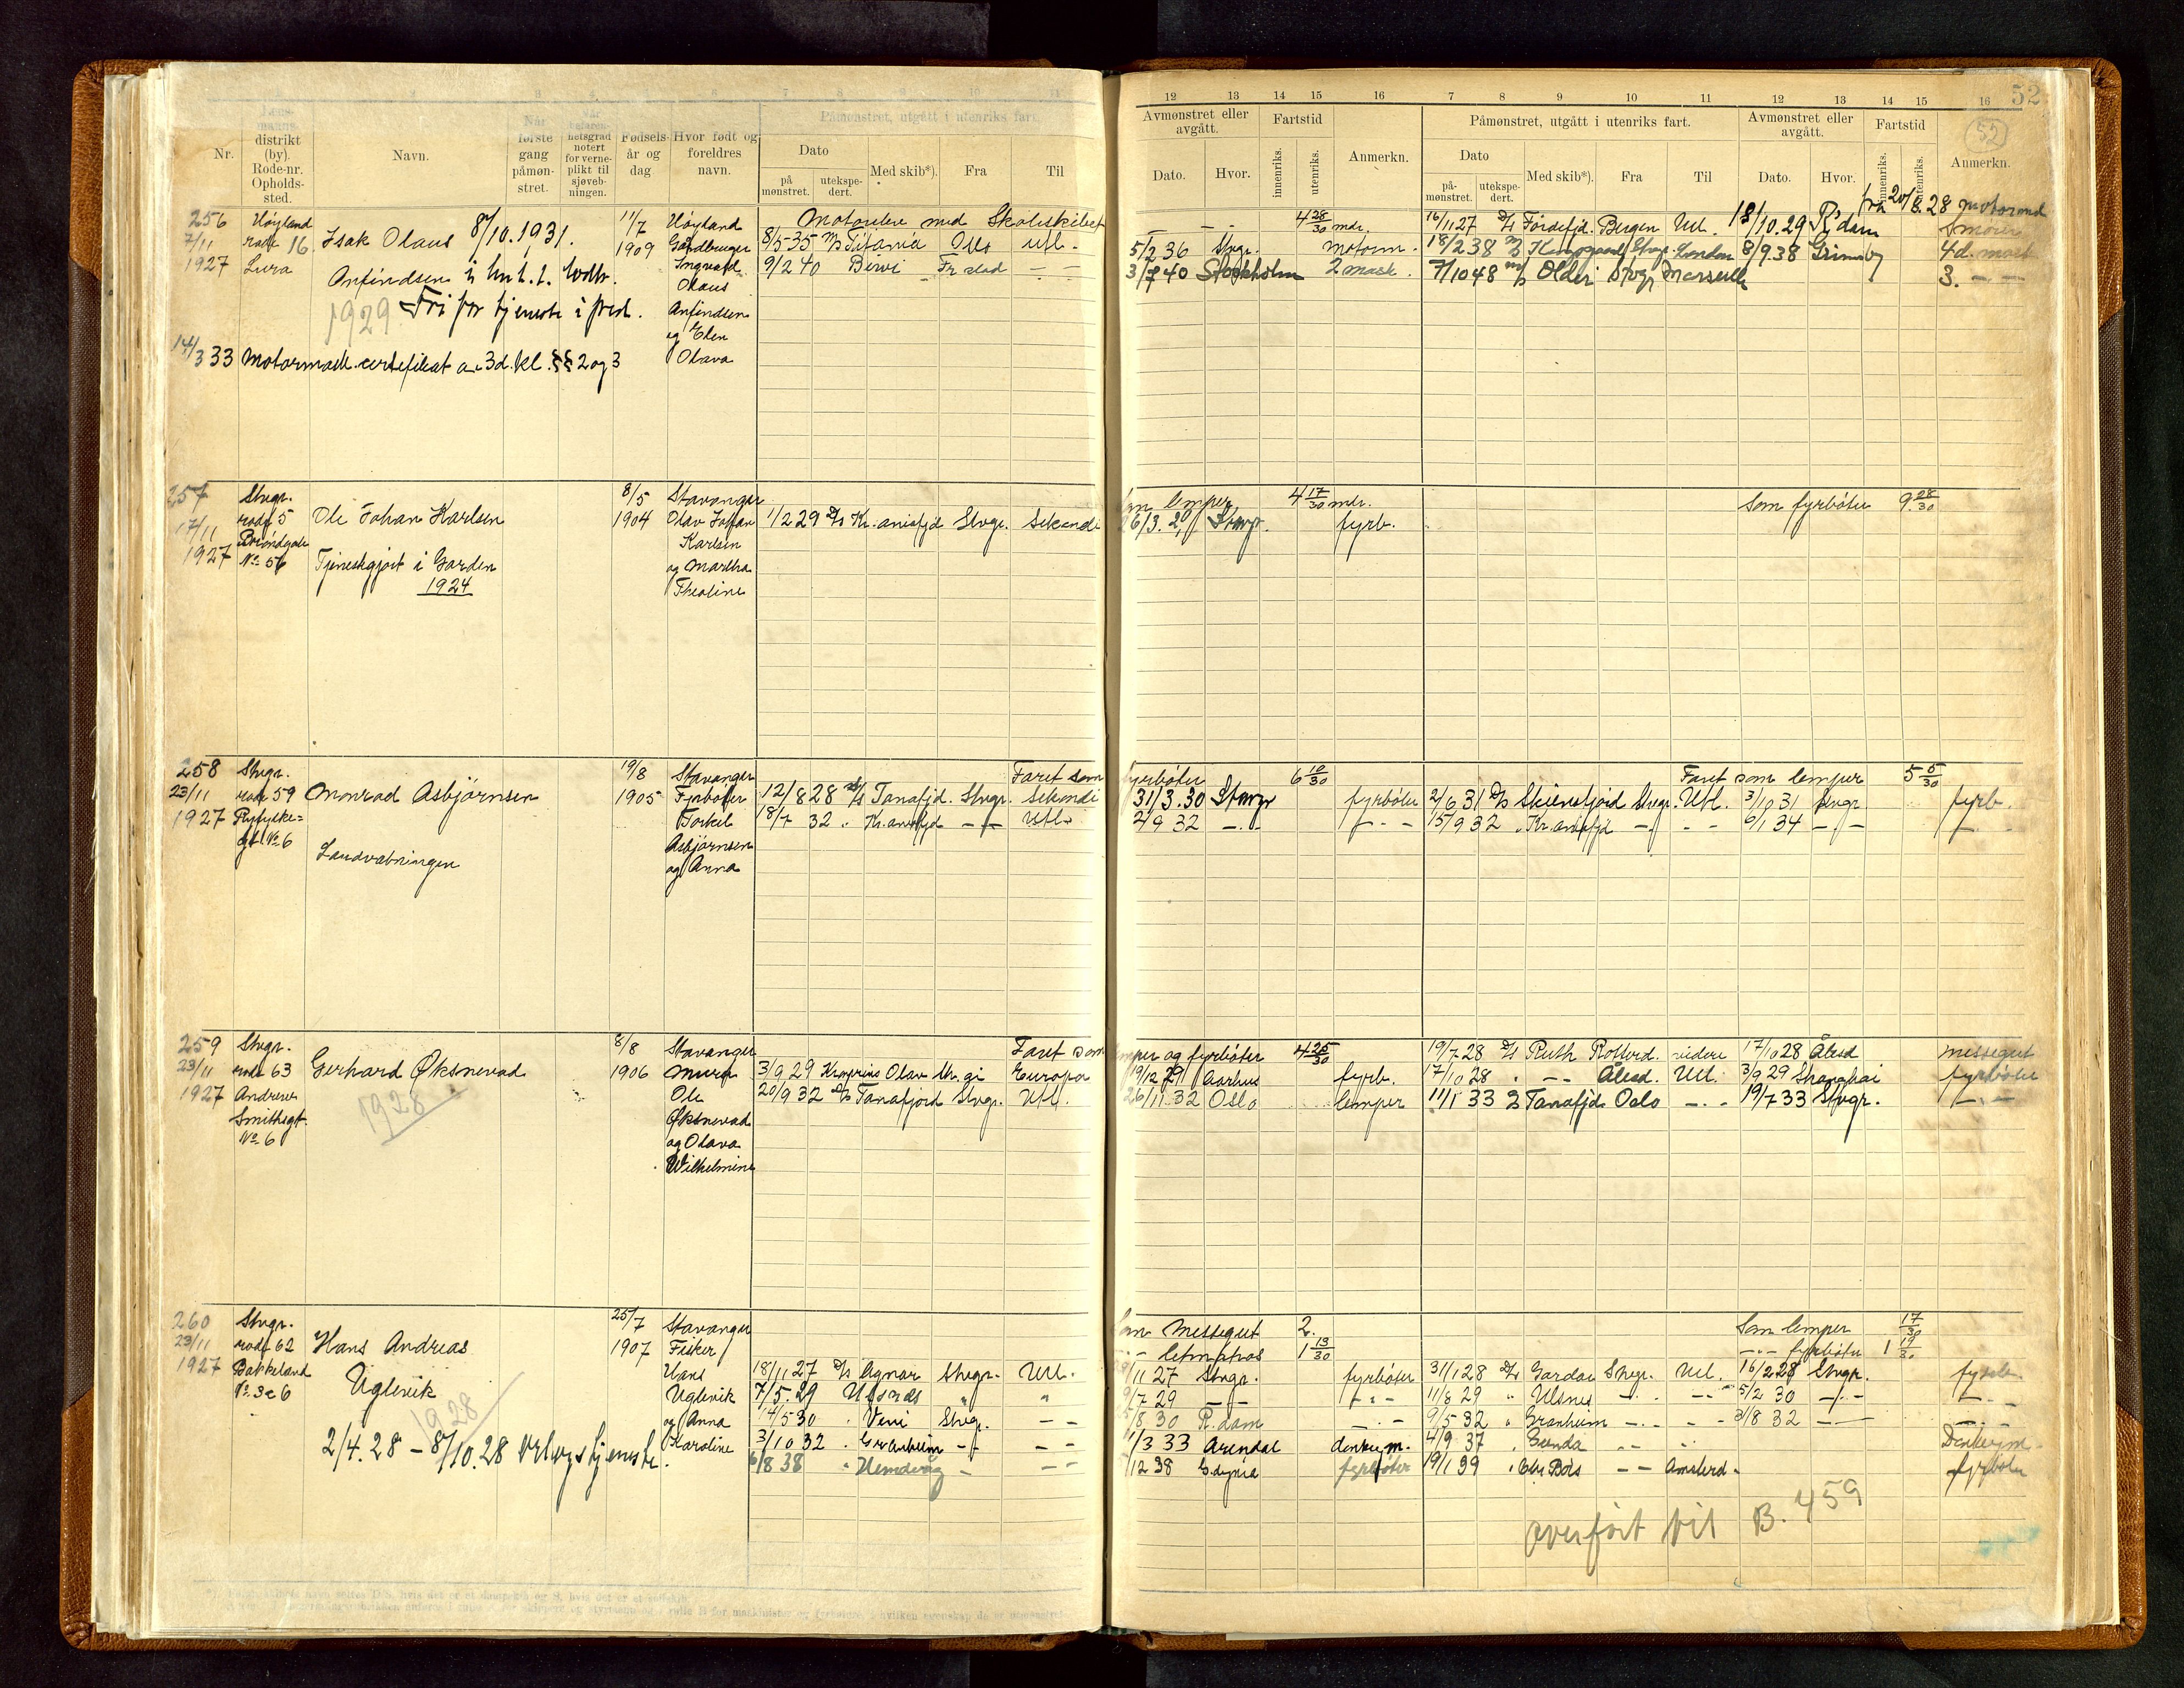 52
52
2 3 4 5 6 7 8 9 10 11
12 13 14 15 16 7 8 9 10 11 12 13 14 15 16
Nr.
Lens-
manns-
distrikt
(by).
Rode-nr.
Opholds-
sted.
Navn.
Når
første
gang
påmøn-
stret.
Når
befaren-
hetsgrad
notert
for verne-
plikt til
sjøveb-
ningen.
Fødsels-
år og
dag
Hvor født og
foreldres
navn.
Påmønstret, utgått i utenriks fart.
Dato
på
mønstret.
utekspe-
dert.
Med skib*).
Fra
Til
Avmønstret eller
avgått.
Dato.
Hvor.
Fartstid
innenriks.
utenriks.
Anmerkn.
Påmønstret, utgått i utenriks fart.
Dato
på-
mønstret.
utekspe-
dert.
Med skib*).
Fra
Til
Avmønstret eller
avgått.
Dato.
Hvor.
Fartstid
innenriks.
utenriks.
Anmerkn.
256
7/11
1927
Høyland
rode 16
Lura
Isak Olaus 8/10.1931.
Anfindsen
1929 Fri for tjeneste i fred.
14/3 33 Motormask. certifikat av 3d. kl. §§ 2 og 3
11/7
1909
Høyland
Gårdbruger
Ingvald
Olaus
Anfindsen
og Elen
Olava
Motorelev med Skoleskibet
8/5-35 M/S Titania Oslo Utl.
9/2 40 Fr.stad — —
— - - 4 28/30 mdr.
5/2 36 Stvgr. Motorm.
3/7 40 Stockholm 2 mask.
fra 20/8.28 motormd
16/11 27 D/S Fördefjd. Bergen Utl. 18/10.29 R'dam
18/2 38 M/S Stvgr. London 8/9.38 Grimsby 4d. mask
7/10 48 M/S Older Stvgr Marseille 3. — —
257
17/11
1927
Stvgr.
rode 5
No 56
Ole Johan Karlsen
Tjenestgjort i Garden
1924
8/5
1904
Stavanger
Olav Johan
Karlsen
og Martha
Theoline
1/2 29 D/S Kr.aniafjd Stvgr. Sekondi
Som lemper 4 17/30 mdr.
6/3. 29 Stavgr. fyrb.
Som fyrbøter 9 28/30
258
23/11
1927
Stvgr.
rode 59
Ryfylke=
gt No 6
Monrad Asbjørnsen
Landvæbningen
19/8
1905
Stavanger
Fyrbøter
Torkel
Asbjørnsen
og Anna
Faret som
12/8 28 D/S Tanafjd. Stvgr. Sekondi
18/7 32 " Kr.aniafjd — — Utl.
fyrbøter 6 10/30
31/3.30 Stavgr fyrbøter
2/9 32 — . — — - —
Faret som lemper 5 5/30
2/6 31 D/S Skiensfjord Stvgr. Utl. 3/10 31 Stvgr fyrb.
15/9 32 " Kr.aniafjd — - - 6/1 34 — — —
259
23/11
1927
Stvgr.
rode 63
Andreas
Smithsgt.
No 6
Gerhard Øksnevad
1928
8/8
1906
Stavanger
Murer
Ole
Øksnevad
og Olava
Wilhelmine
Faret som
3/9 29 Kronprins Olav Europa
20/9 32 D/S Tanafjord Stvgr. Utl.
lemper og fyrbøter 4 25/30
19/12 29 Aarhus fyrb.
26/11 32 Oslo lemper
19/7 28 D/S Ruth Rotterd. videre 17/10 28 Ålesd messegut
17/10 28 " — — Ålesd. Utl. 3/9 29 Shanghai fyrbøter
11/1 33 D/S Tanafjd Oslo — - - 19/7 33 Stvgr. — - —
260
23/11
1927
Stvgr.
rode 62
Bakkeland
No 3 c 6
Hans Andreas
Uglevik
1928
2/4.28 – 8/10.28 Utl.
25/7
1907
Stavanger
Fisker
Hans
Uglevik
og Anna
Karoline
18/11 27 D/S Agnar Stvgr. Utl.
7/5. 29 Ulsnæs " "
14/5 30 " Veni Stvgr. — —
3/10 32 " Granheim — — —
6/8 38 " Hemdvåg — — —
Som Messegut 2.
— - letmatros 1 13/30
11 27 Stvgr. fyrbøter
9/7 29 — — — - —
8 30 R.dam — - —
1/3 33 Arendal donkeym.
12 38 Gdynia fyrbøter
Som lemper 17/30
— - — fyrbøter 1 19/30
31/1 28 D/S Gardar Stvgr. Utl. 16/2 28 Stvgr. fyrb.
11/8 29 " Ulsnes — . — — 5/2 30 — . — — - —
9/5 32 " Granheim — . — — 3/8 32 — — — - —
4/9 37 " Gunda — — - - Donkeym.
19/1 39 " Bris — — Amsterd. fyrbøter
overført til B. 459